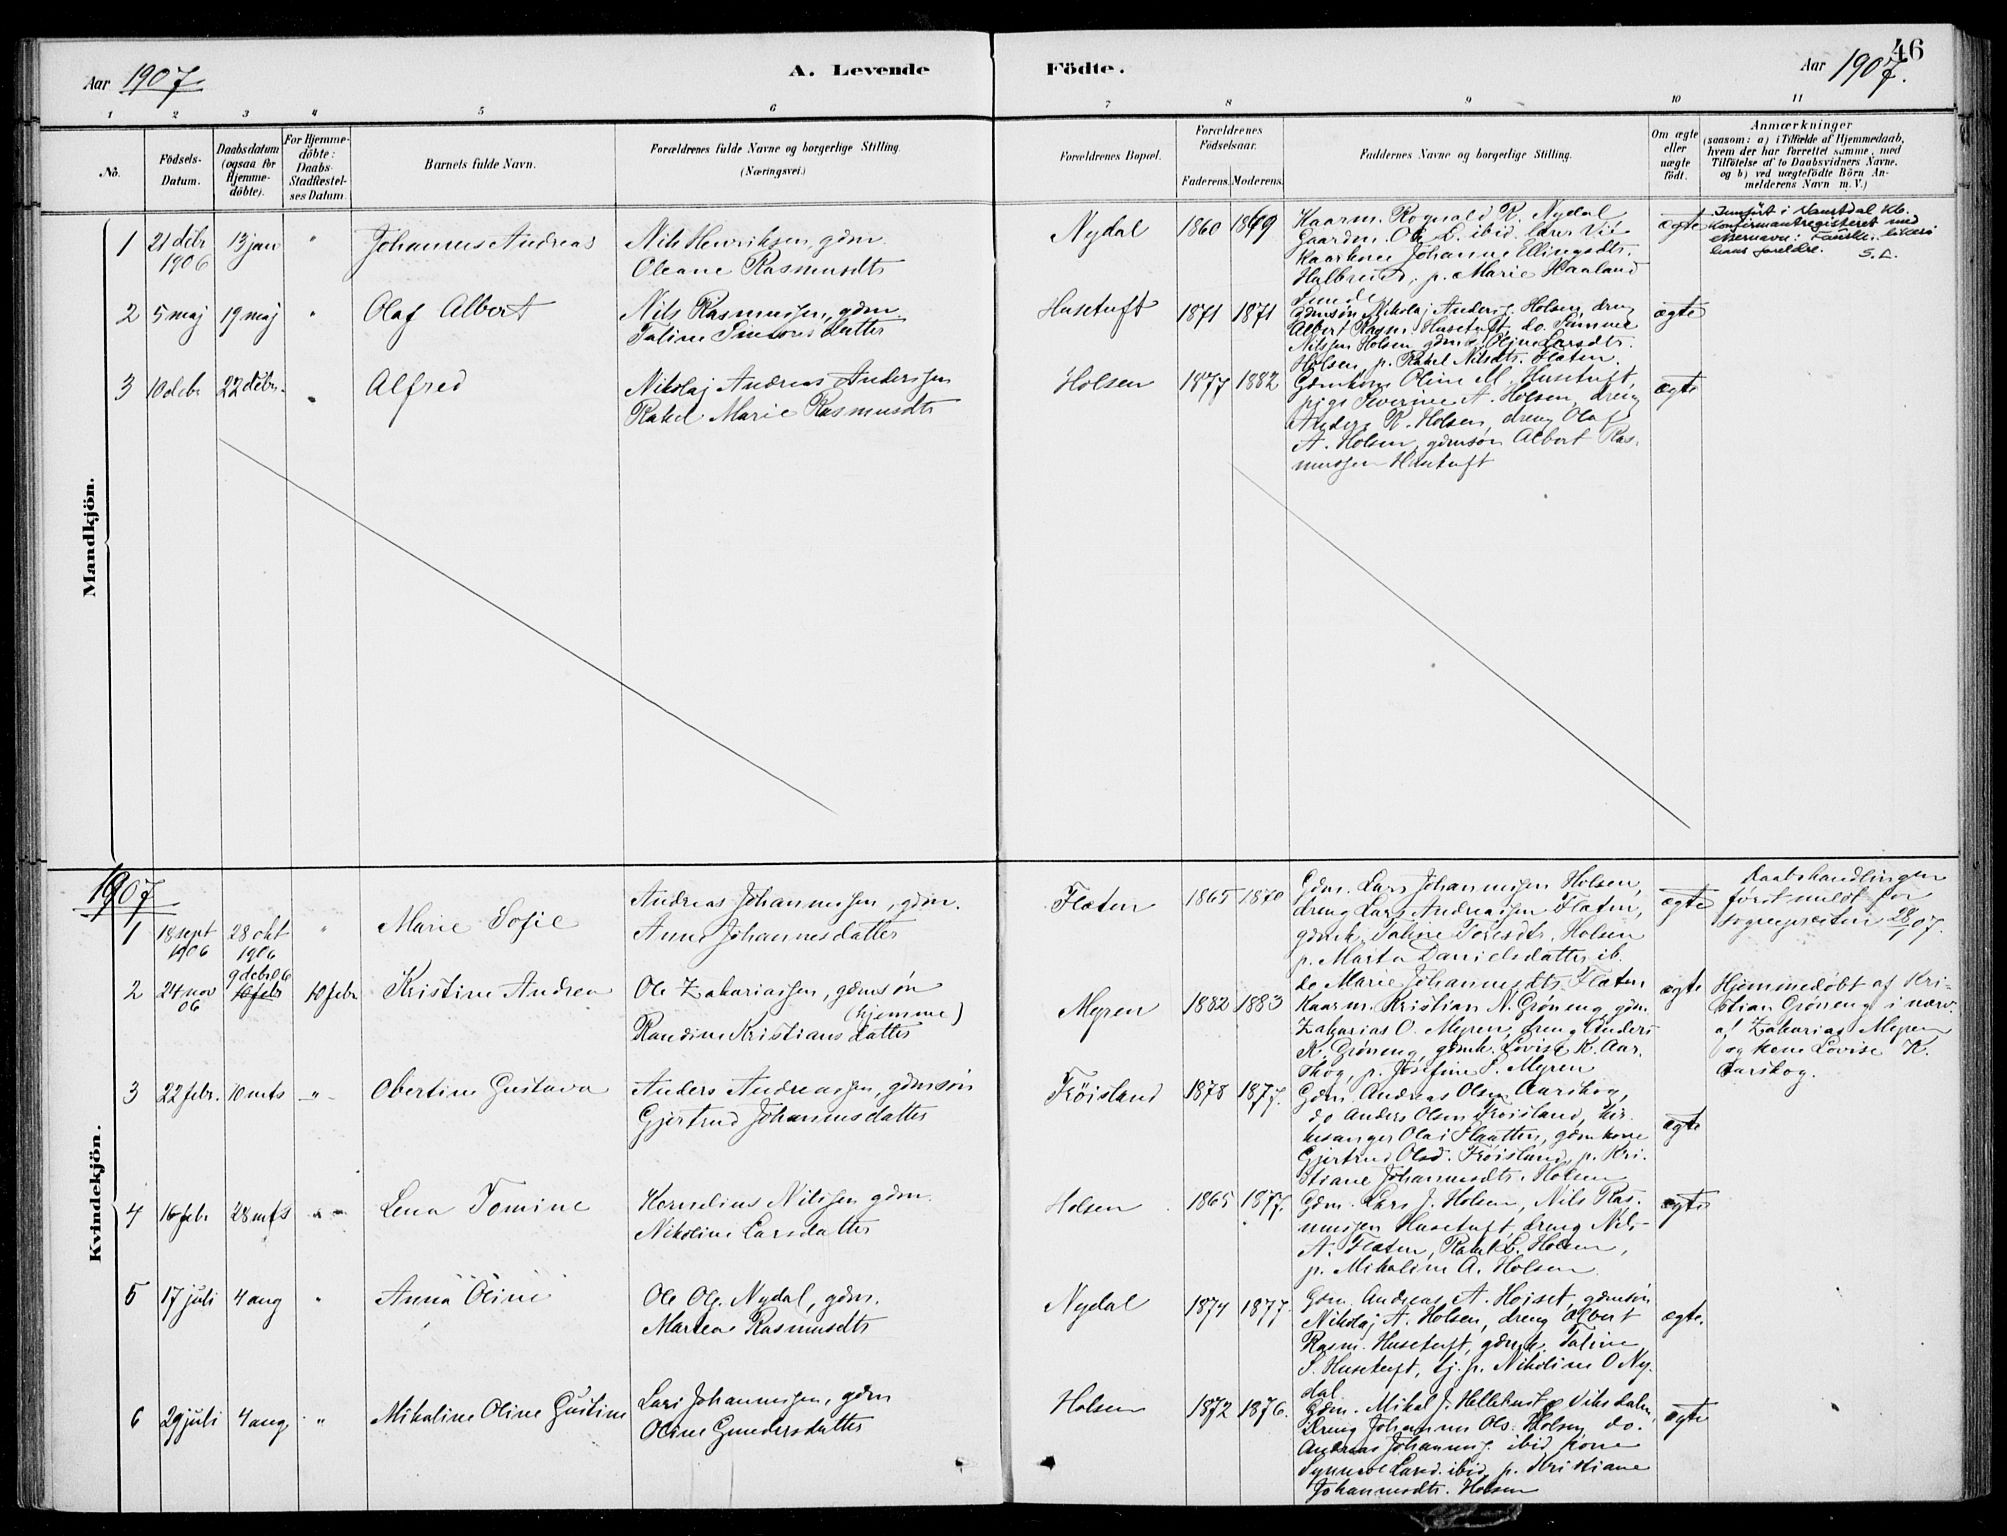 46
Aar 1907
A. Levende Födte.
Aar 1907.
1 2 3 " 5 6 7 8 9 10 11
No.
Födsels-
Datum.
Daabsdatum
(ogsaa for
Hjemme-
döbte).
For Hjemme-
döbte:
Daabs-
Stadfæstel-
ses Datum.
Barnets fulde Navn.
Forældrenes fulde Navne og borgerlige Stilling.
(Næringsvei.)
Forældrenes Bopæl.
Forældrenes
Födselsaar.
Faderens. Moderens.
Faddernes Navne og borgerlige Stilling.
Om ægte
eller
uægte
födt.
Anmærkninger
(saasom: a) i Tilfælde af Hjemmedaab,
hvem der har forrettet samme, med
Tilföielse af to Daabsvidners Navne,
og b) ved uægtefödte Börn An-
melderens Navn m. V.)
Mandkjön.
1 21 debr 13 jan " Johannes Andreas Nils Henriksen, gdm. Nydal 1860 1869
1906
Oleane Rasmusdtr
Kaarm. Rognald R. Nydal
Gaardm. Ole L. ibid. lærer
Kaarkone Johanne Ellingsdtr.
p. Marie Haaland
ægte
Konfirmantregisteret med
S.L.
2 5 maj 19 maj " Olaf Albert Nils Rasmussen, gdm. Husetuft 1871 1871
Taline
Gdmsøn Nikolaj Anders. Holsen, dreng
Albert Rasm. Husetuft, do.
Nilssen Holsen gdmk. Oline Larsdtr.
Holsen, p. Rakel Nilsdtr. Flaten
ægte
3 10 debr 22 debr. " Alfred Nikolaj Andreas Anderssen Holsen 1877 1882
Rakel Marie Rasmusdtr
Gdmkone Oline M. Husetuft,
pige Severine A. Holsen, dreng
Anders R. Holsen, dreng Olaf
A. Holsen, gdmsøn Albert Ras-
mussen Husetuft
ægte
Kvindekjön.
1907
1 18 sept 28 okt " Marie Sofie Andreas Johannessen, gdm. Flaten 1865 1870
1906 1906
Anne Johannesdatter
Gdm. Lars Johannessen Holsen,
dreng Lars Andreassen Flaten,
gdmk. Taline Toresdtr. Holsen
p. Marta Danielsdatter ib.
do Marie Johannesdtr. Flaten
ægte
Daabshandlingen
først meldt for
sognepresten 28/1 07.
2 24 nov 9 debr 06 10 febr Kristine Andrea Ole Zakariassen, gdmsøn Myren 1882 1883
06 10 febr
(hjemme)
Randine Kristiansdatter
Kaarm. Kristian N. Grøneng, gdm.
Zakarias O. Myren, dreng Anders
K. Grøneng, gdmk. Lovise K. Aar-
skog, p. Josefine S. Myren
ægte
Hjemmedøbt af Kri-
stian Grøneng i nærv.
af Zakarias Myren
og kone Lovise K.
Aarskog.
3 22 febr. 10 mts " Obertine Gustava Anders Andreassen, gdmsøn Frøisland 1878 1877.
Gjertrud Johannesdatter
Gdm. Andreas Olsen Aarskog,
do Anders Olsen Frøisland, kir-
kesanger Olai Flaatten, gdmkone
Gjertrud Olsd. Frøisland, p. Kri-
stiane Johannesdtr. Holsen
ægte
4 16 febr 28 mts " Lena Tomine Kornelius Nilssen gdm. Holsen 1865 1877.
Nikoline Larsdatter
Gdm. Lars J. Holsen, Nils Ras-
mussen Husetuft, dreng Nils
A. Flaten, Rakel L. Holsen,
p. Mikaline A. Holsen
ægte
5 17 juli 4 aug " Anna Oline Ole Ols. Nydal, gdm. Nydal 1874 1877.
Martea Rasmusdtr
Gdm. Andreas A. Hojset, gdmsøn
Nikolaj A. Holsen, dreng Albert
Rasm. Husetuft, gdmk. Taline
S. Husetuft, tj. p. Nikoline O Ny-
dal
ægte.
6 29 juli 4 aug " Mikaline Oline Gustine Lars Johannessen, gdm Holsen 1872 1876.
Oline Gundersdatter
Gdm. Mikal J. Hellehuset, Viksdalen,
Dreng Johannes Ols. Holsen, do.
Andreas Johanness. ibid kone
Synneve Larsd. ibid, p. Kristiane
Johannesdtr. Holsen
ægte